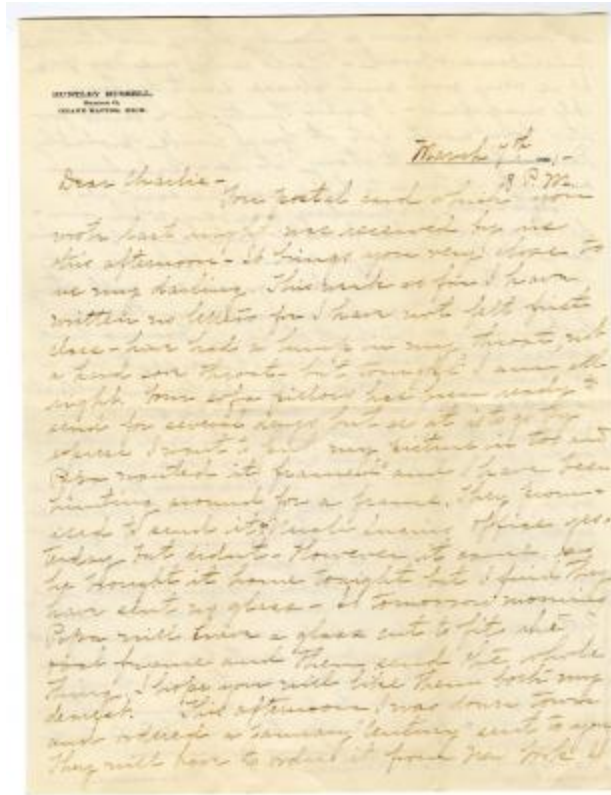 HUNTLEY RUSSELL,
GRAND RAPIDS, MICH.
March 7th
8 P.M.
Dear Charlie -
Your postal card which you
wrote last night was received by me
this afternoon - it brings you very close to
me my darling. This week so far I have
written no letters for I have not felt first
class - have had a lump in my throat, not
a hard sore throat but tonight I am all
right. Your sofa pillow has been ready to
send for several days but as it is to go by
express I want to put my picture in too and
Papa wanted it framed and I have been
hunting around for a frame. They prom-
ised to send it office yes-
terday but didn't. However it came
he brought it home tonight but I find they
have sent no glass - so tomorrow morning
Papa will have a glass cut to fit the
oval frame and then send the whole
thing. I hope you will like them both my
dearest. This afternoon I was down town
and ordered a January "Century" sent to you
They will have to order it from New York